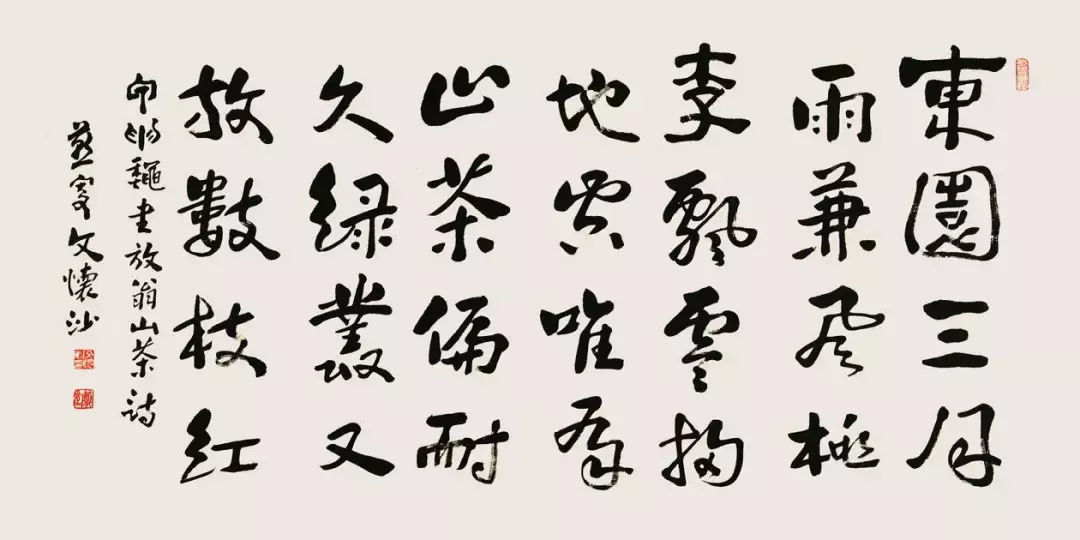 東園三月
雨兼風桃
李飄零掃
地空唯有
山茶偏耐
久绿叢又
放數枝红
龝書放翁山茶詩
燕叟文懷沙